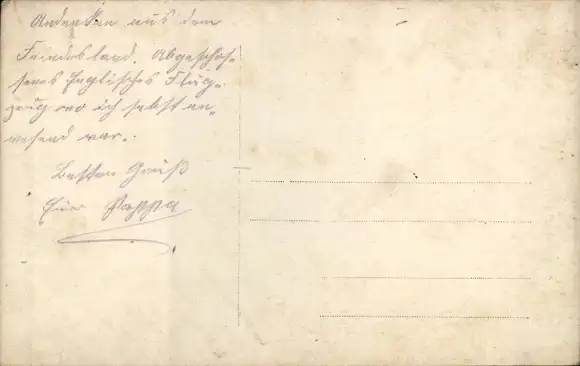 Andenken aus dem
Feindesland. Abgeschos-
senes Englisches Flug-
zeug wo ich selbst an-
wesend war.
Besten Gruß
Euer Pappa